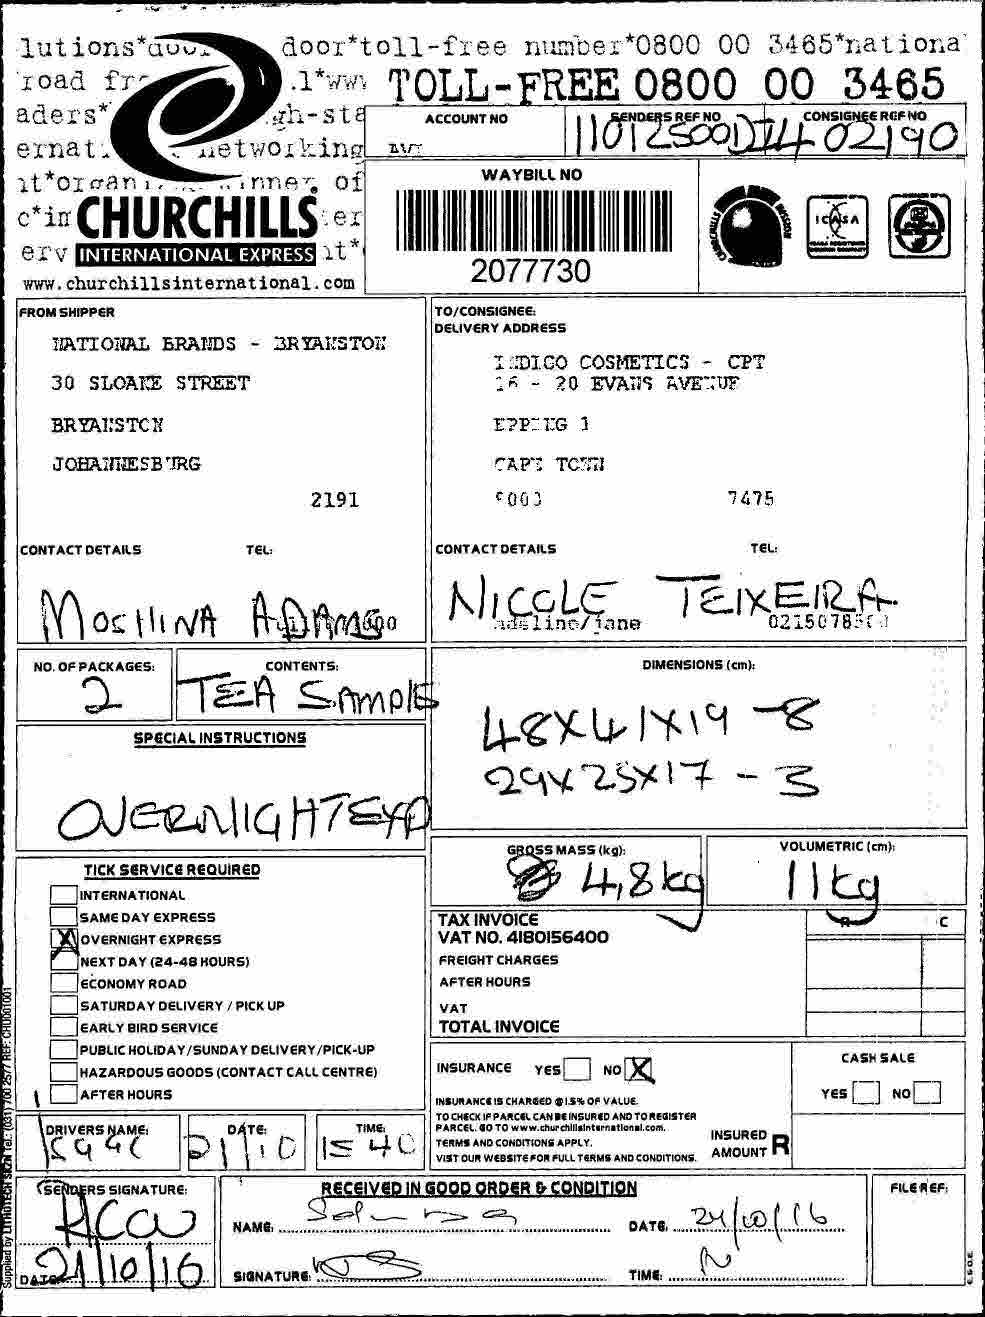 door*toll-free number*0800 00 3465*nationa
TOLL-FREE 0800 00 3465
networking
CHURCHILLS
INTERNATIONAL EXPRESS
www.churchillsinternational.com
ACCOUNT NO
SENDERS REF NO
CONSIGNEE REF NO
WAYBILL NO
2077730
ICASA
FROM SHIPPER
NATIONAL BRANDS - BRYANSTON
30 SLOANE STREET
BRYANSTON
JOHANNESBURG
2191
CONTACT DETAILS TEL:
TO/CONSIGNEE:
DELIVERY ADDRESS
INDIGO COSMETICS - CPT
16 - 20 EVANS AVENUE
EPPING 1
CAPE TOWN
7475
CONTACT DETAILS TEL:
NICOLE TEIXEIRA
adeline/jane
NO. OF PACKAGES:
2
CONTENTS:
TEA SAMPLES
DIMENSIONS (cm):
48X41X19 - 8
29X25X17 - 3
SPECIAL INSTRUCTIONS
OVERNIGHT EXP
GROSS MASS (kg):
4,8kg
VOLUMETRIC (cm):
11kg
TICK SERVICE REQUIRED
INTERNATIONAL
SAME DAY EXPRESS
X OVERNIGHT EXPRESS
NEXT DAY (24-48 HOURS)
ECONOMY ROAD
SATURDAY DELIVERY / PICK UP
EARLY BIRD SERVICE
PUBLIC HOLIDAY/SUNDAY DELIVERY/PICK-UP
HAZARDOUS GOODS (CONTACT CALL CENTRE)
AFTER HOURS
TAX INVOICE R C
VAT NO. 4180156400
FREIGHT CHARGES
AFTER HOURS
VAT
TOTAL INVOICE
INSURANCE YES NO X
INSURANCE IS CHARGED @ 1.5% OF VALUE.
TO CHECK IF PARCEL CAN BE INSURED AND TO REGISTER
PARCEL. GO TO www.churchillsinternational.com.
TERMS AND CONDITIONS APPLY.
VIST OUR WEBSITE FOR FULL TERMS AND CONDITIONS.
CASH SALE
YES NO
INSURED
AMOUNT R
DRIVERS NAME:
DATE:
21/10
TIME:
15 40
SENDERS SIGNATURE:
DATE 21/10/16
RECEIVED IN GOOD ORDER & CONDITION
NAME:
DATE. 24/10/16
SIGNATURE:
TIME:
FILE REF:
E.&O.E.